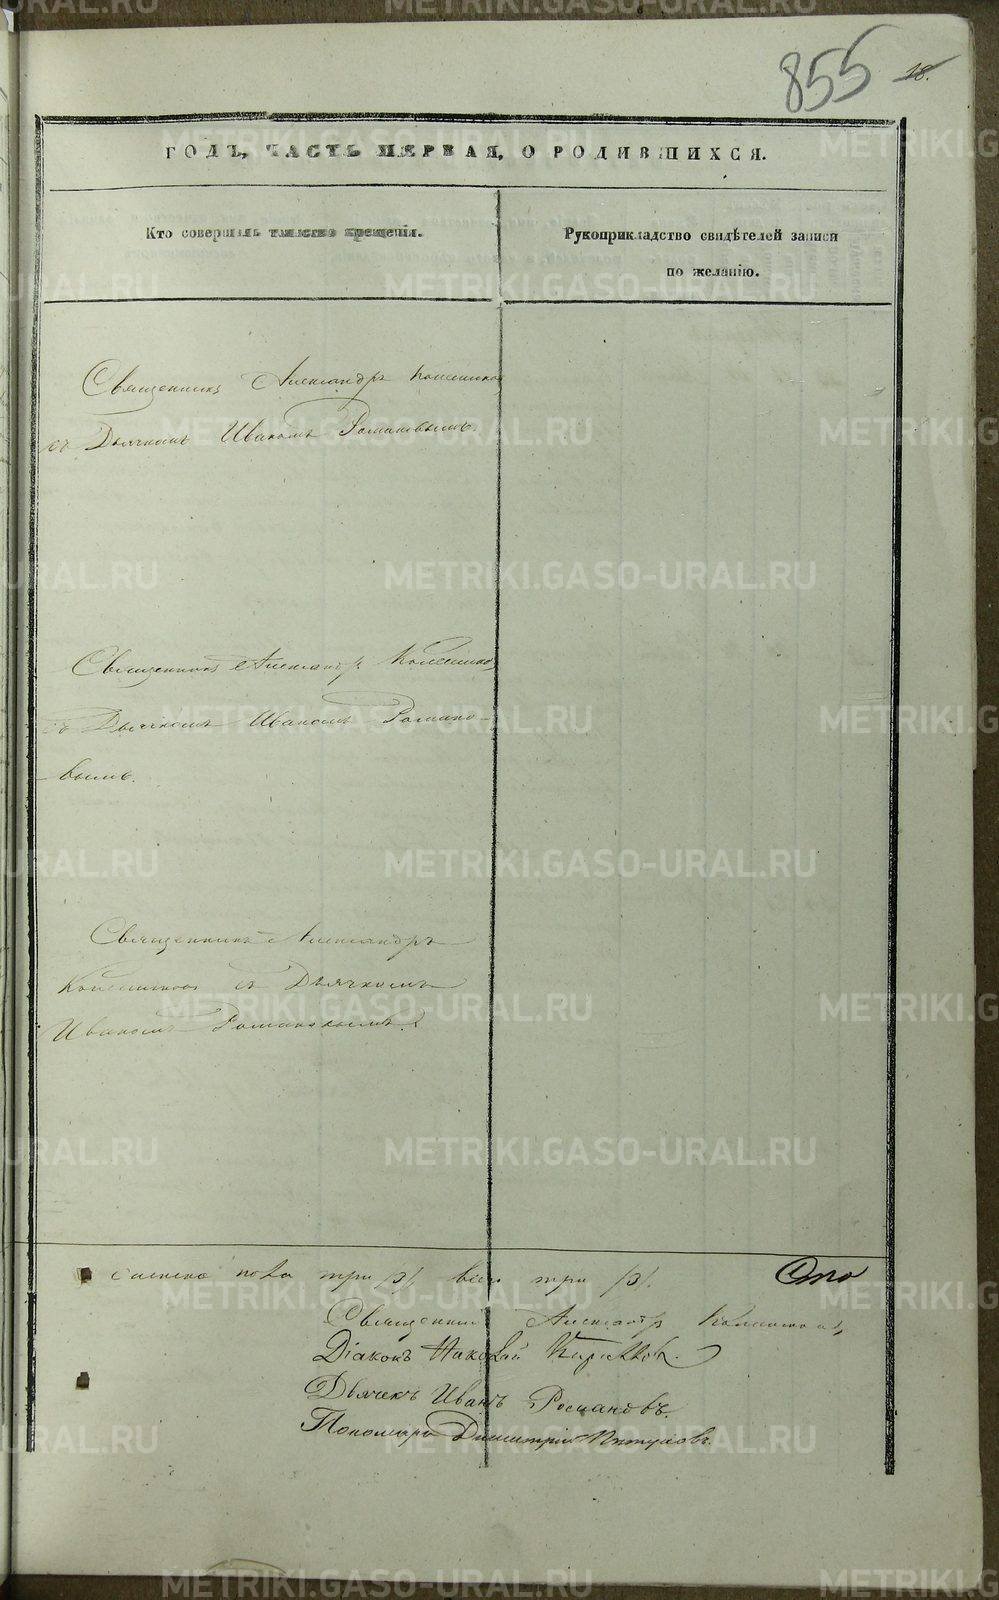 855 18.
ГОДЪ, ЧАСТЬ ПЕРВАЯ, О РОДИВШИХСЯ.
Кто совершалъ таинство крещенія.
Рукоприкладство свидѣтелей записи
по желанію.
Священникъ Александръ
съ Дьячкомъ Иваномъ Романовымъ.
Священникъ Александръ
съ Дьячкомъ Иваномъ Романо-
вымъ.
Священникъ Александръ
съ Дьячкомъ
Иваномъ Романовымъ.
пола три /3/. всего три /3/.
Священникъ Александръ
Діаконъ Николай
Дьячекъ Иванъ Романовъ.
Пономарь Димитрій
METRIKI.GASO-URAL.RU